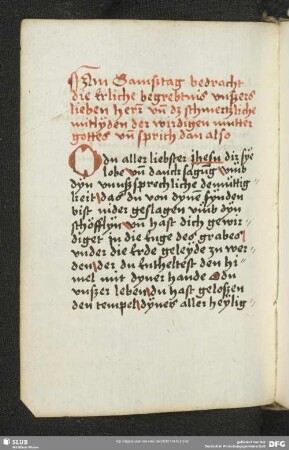 Am Samstag bedracht
die erliche begrebtnis unszers
lieben herrn un dz schmertzliche
mitlyden der wirdigen mutter
gottes un sprich dan also
O du aller liebster jhesu dir sye
lobe un danck sagug umb
dyn unußsprechliche demuttig
keit das du von dyne fynden
bist nider geslagen umb dyn
schöfflyn un hast dich gewir
diget in die enge des grabes
under die erde geleyde zu wer
den der du entheltest den hi
mel mit dyner hande O du
unszer leben du hast geloszen
den tempel dyneß aller heylig
SLUB
DFG